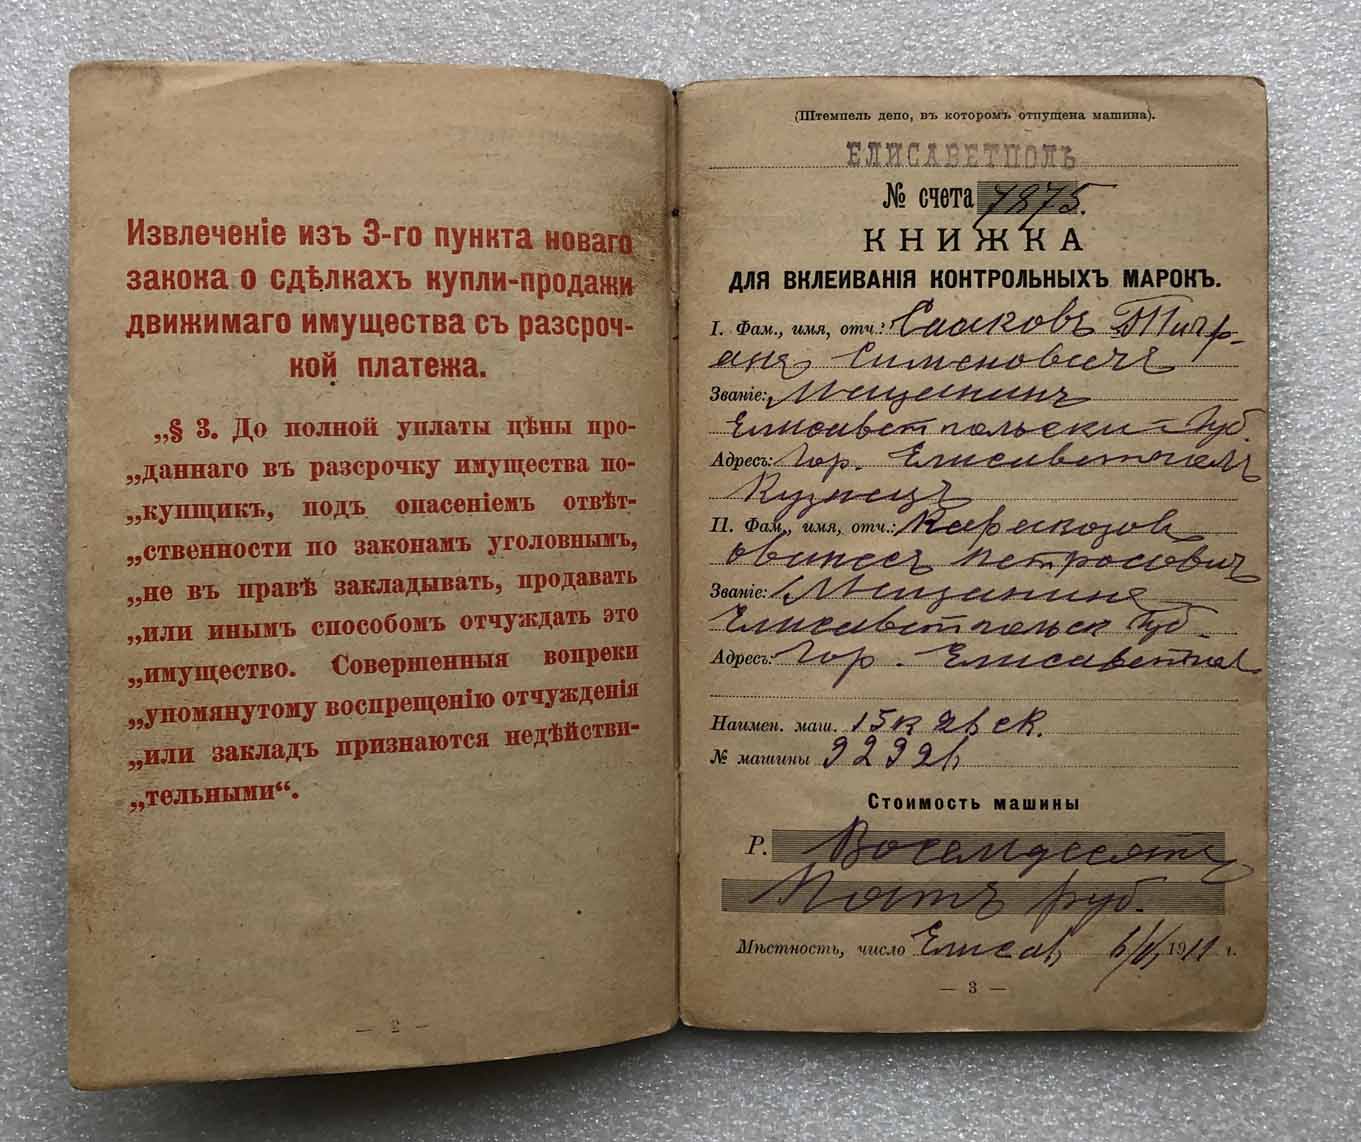 Извлеченіе изъ 3-го пункта новаго
закона о сдѣлкахъ купли-продажи
движимаго имущества съ разсроч-
кой платежа.
„§ 3. До полной уплаты цѣны про-
„даннаго въ разсрочку имущества по-
„купщикъ, подъ опасеніемъ отвѣт-
„ственности по законамъ уголовнымъ,
„не въ правѣ закладывать, продавать
„или инымъ способомъ отчуждать это
„имущество. Совершенныя вопреки
„упомянутому воспрещенію отчужденія
„или закладъ признаются недѣйстви-
„тельными“.
— 2 —
(Штемпель депо, въ которомъ отпущена машина).
ЕЛИСАВЕТПОЛЬ
№ счета 7875.
КНИЖКА
ДЛЯ ВКЛЕИВАНІЯ КОНТРОЛЬНЫХЪ МАРОКЪ.
I. Фам., имя, отч.: Сааковъ Тигр-
анъ Симеоновичъ
Званіе: Мещанинъ
Елисаветпольски Губ.
Адресъ: Гор. Елисаветполь
Кузнецъ
II. Фам., имя, отч.: Каракозов
Ованесъ Петросович
Званіе: Мещанинъ
Елисаветпольск Губ.
Адресъ: Гор. Елисаветпол
Наимен. маш. 15к
№ машины
Стоимость машины
Р. Восемдесять
Пять руб.
Мѣстность, число Елисав 1911 г.
— 3 —